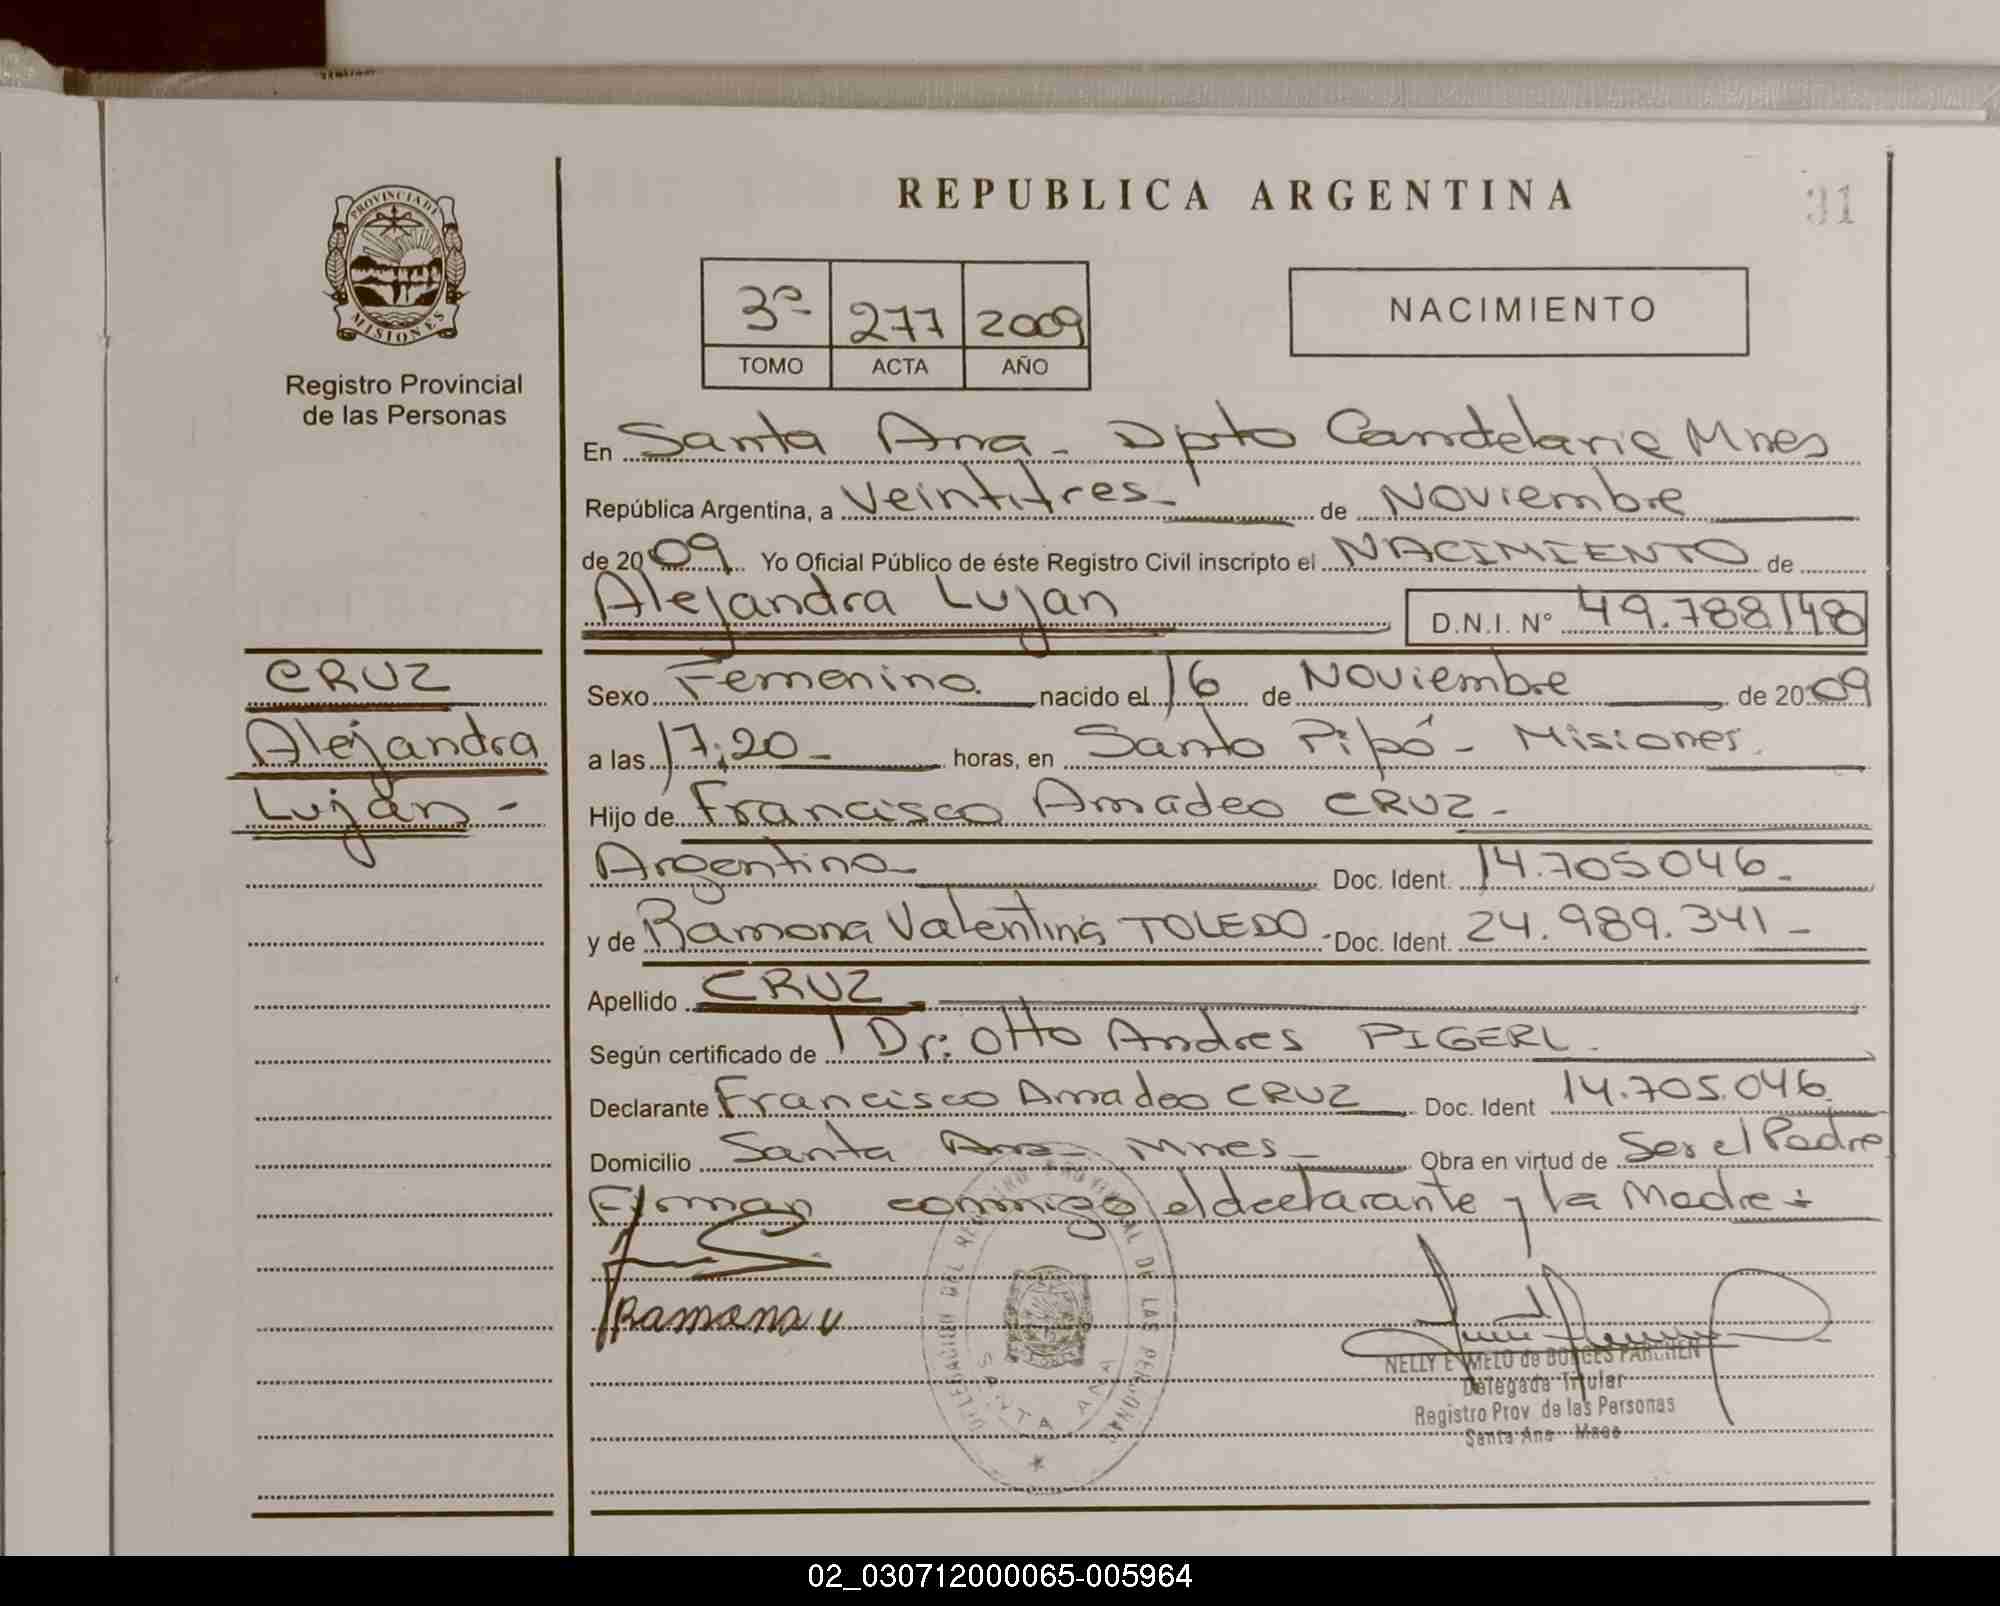 REPUBLICA ARGENTINA
31
PROVINCIA DE
MISIONES
Registro Provincial
de las Personas
3º 277 2009
TOMO ACTA AÑO
NACIMIENTO
En Santa Ana - Dpto Candelaria Mnes
República Argentina, a Veintitres - de Noviembre
de 2009 Yo Oficial Público de éste Registro Civil inscripto el NACIMIENTO de
Alejandra Lujan D.N.I. Nº 49.788148
CRUZ
Alejandra
Luján -
Sexo Femenino nacido el 16 de Noviembre de 2009
a las 17:20 - horas, en Santo Pipó - Misiones.
Hijo de Francisco Amadeo CRUZ -
Argentino - Doc. Ident. 14.705046 -
y de Ramona Valentina TOLEDO - Doc. Ident. 24.989.341 -
Apellido CRUZ
Según certificado de Dr: Otto Andres PIGERL.
Declarante Francisco Amadeo CRUZ Doc. Ident 14.705.046.
Domicilio Santa Ana - Mnes - Obra en virtud de Ser el Padre
Firman conmigo el declarante y la Madre
Ramona V
DELEGACION DEL REGISTRO PROVINCIAL DE LAS PERSONAS
SANTA ANA
NELLY E MELO de BORGES PARCHEN
Delegada Titular
Registro Prov. de las Personas
Santa Ana Mnes
02_030712000065-005964